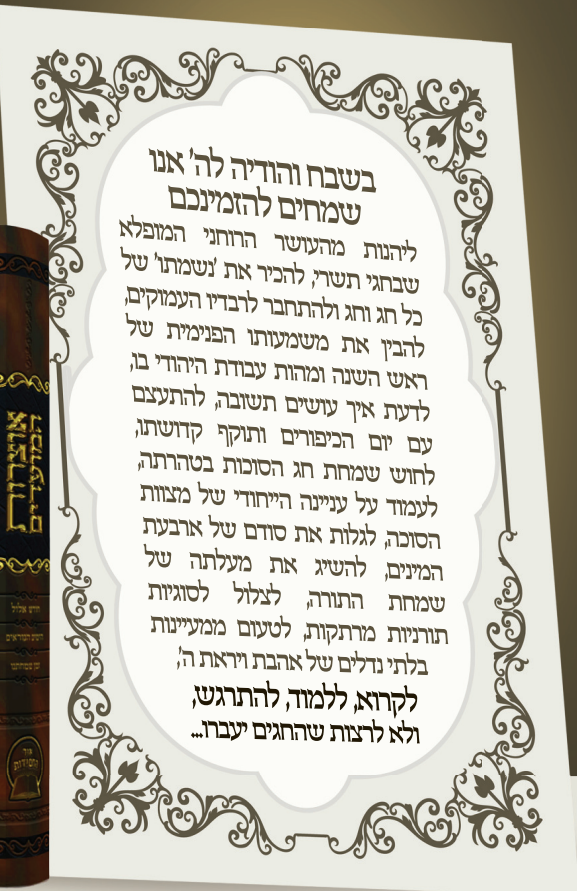 בשבח והודיה לה' אנו
שמחים להזמינכם
ליהנות מהעושר הרוחני המופלא
שבחגי תשרי, להכיר את 'נשמתו' של
כל חג וחג ולהתחבר לרבדיו העמוקים,
להבין את משמעותו הפנימית של
ראש השנה ומהות עבודת היהודי בו,
לדעת איך עושים תשובה, להתעצם
עם יום הכיפורים ותוקף קדושתו,
לחוש שמחת חג הסוכות בטהרתה,
לעמוד על עניינה הייחודי של מצוות
הסוכה, לגלות את סודם של ארבעת
המינים, להשיג את מעלתה של
שמחת התורה, לצלול לסוגיות
תורניות מרתקות, לטעום ממעיינות
בלתי נדלים של אהבת ויראת ה',
לקרוא, ללמוד, להתרגש,
ולא לרצות שהחגים יעברו...
אוצרות
המועדים
חודש אלול